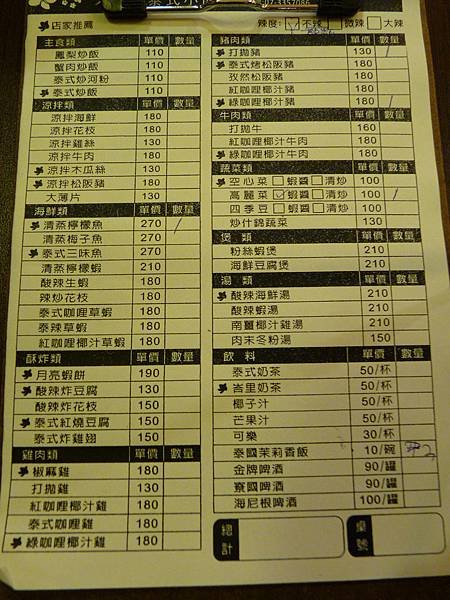 泰式小
07-3357086
店家推薦
辣度: 不辣 微辣 大辣
主食類 單價 數量
鳳梨炒飯 110
蟹肉炒飯 110
泰式炒河粉 110
泰式炒飯 110
涼拌類 單價 數量
涼拌海鮮 180
涼拌花枝 180
涼拌雞絲 130
涼拌牛肉 180
涼拌木瓜絲 130
涼拌松阪豬 180
大薄片 130
海鮮類 單價 數量
清蒸檸檬魚 270 /
清蒸梅子魚 270
泰式三味魚 270
清蒸檸檬蝦 210
酸辣生蝦 180
辣炒花枝 180
泰式咖哩草蝦 180
泰辣草蝦 180
紅咖哩椰汁草蝦 180
酥炸類 單價 數量
月亮蝦餅 190
酸辣炸豆腐 130
酸辣炸花枝 150
泰式紅燒豆腐 150
泰式炸雞翅 150
雞肉類 單價 數量
椒麻雞 180
打拋雞 130
紅咖哩椰汁雞 180
泰式咖哩雞 180
綠咖哩椰汁雞 180
豬肉類 單價 數量
打拋豬 130 /
泰式烤松阪豬 180
孜然松阪豬 180
紅咖哩椰汁豬 180
綠咖哩椰汁豬 180 /
牛肉類 單價 數量
打拋牛 160
紅咖哩椰汁牛肉 180
綠咖哩椰汁牛肉 180
蔬菜類 單價 數量
空心菜 蝦醬 清炒 100
高麗菜 蝦醬 清炒 100 /
四季豆 蝦醬 清炒 100
炒什錦蔬菜 130
煲類 單價 數量
粉絲蝦煲 210
海鮮豆腐煲 210
湯類 單價 數量
酸辣海鮮湯 210
酸辣蝦湯 210
南薑椰汁雞湯 210
肉末冬粉湯 150
飲料 單價 數量
泰式奶茶 50/杯
峇里奶茶 50/杯
椰子汁 50/杯
芒果汁 50/杯
可樂 30/杯
泰國茉莉香飯 10/碗
金牌啤酒 90/罐
寮國啤酒 90/罐
海尼根啤酒 100/罐
總計
桌號